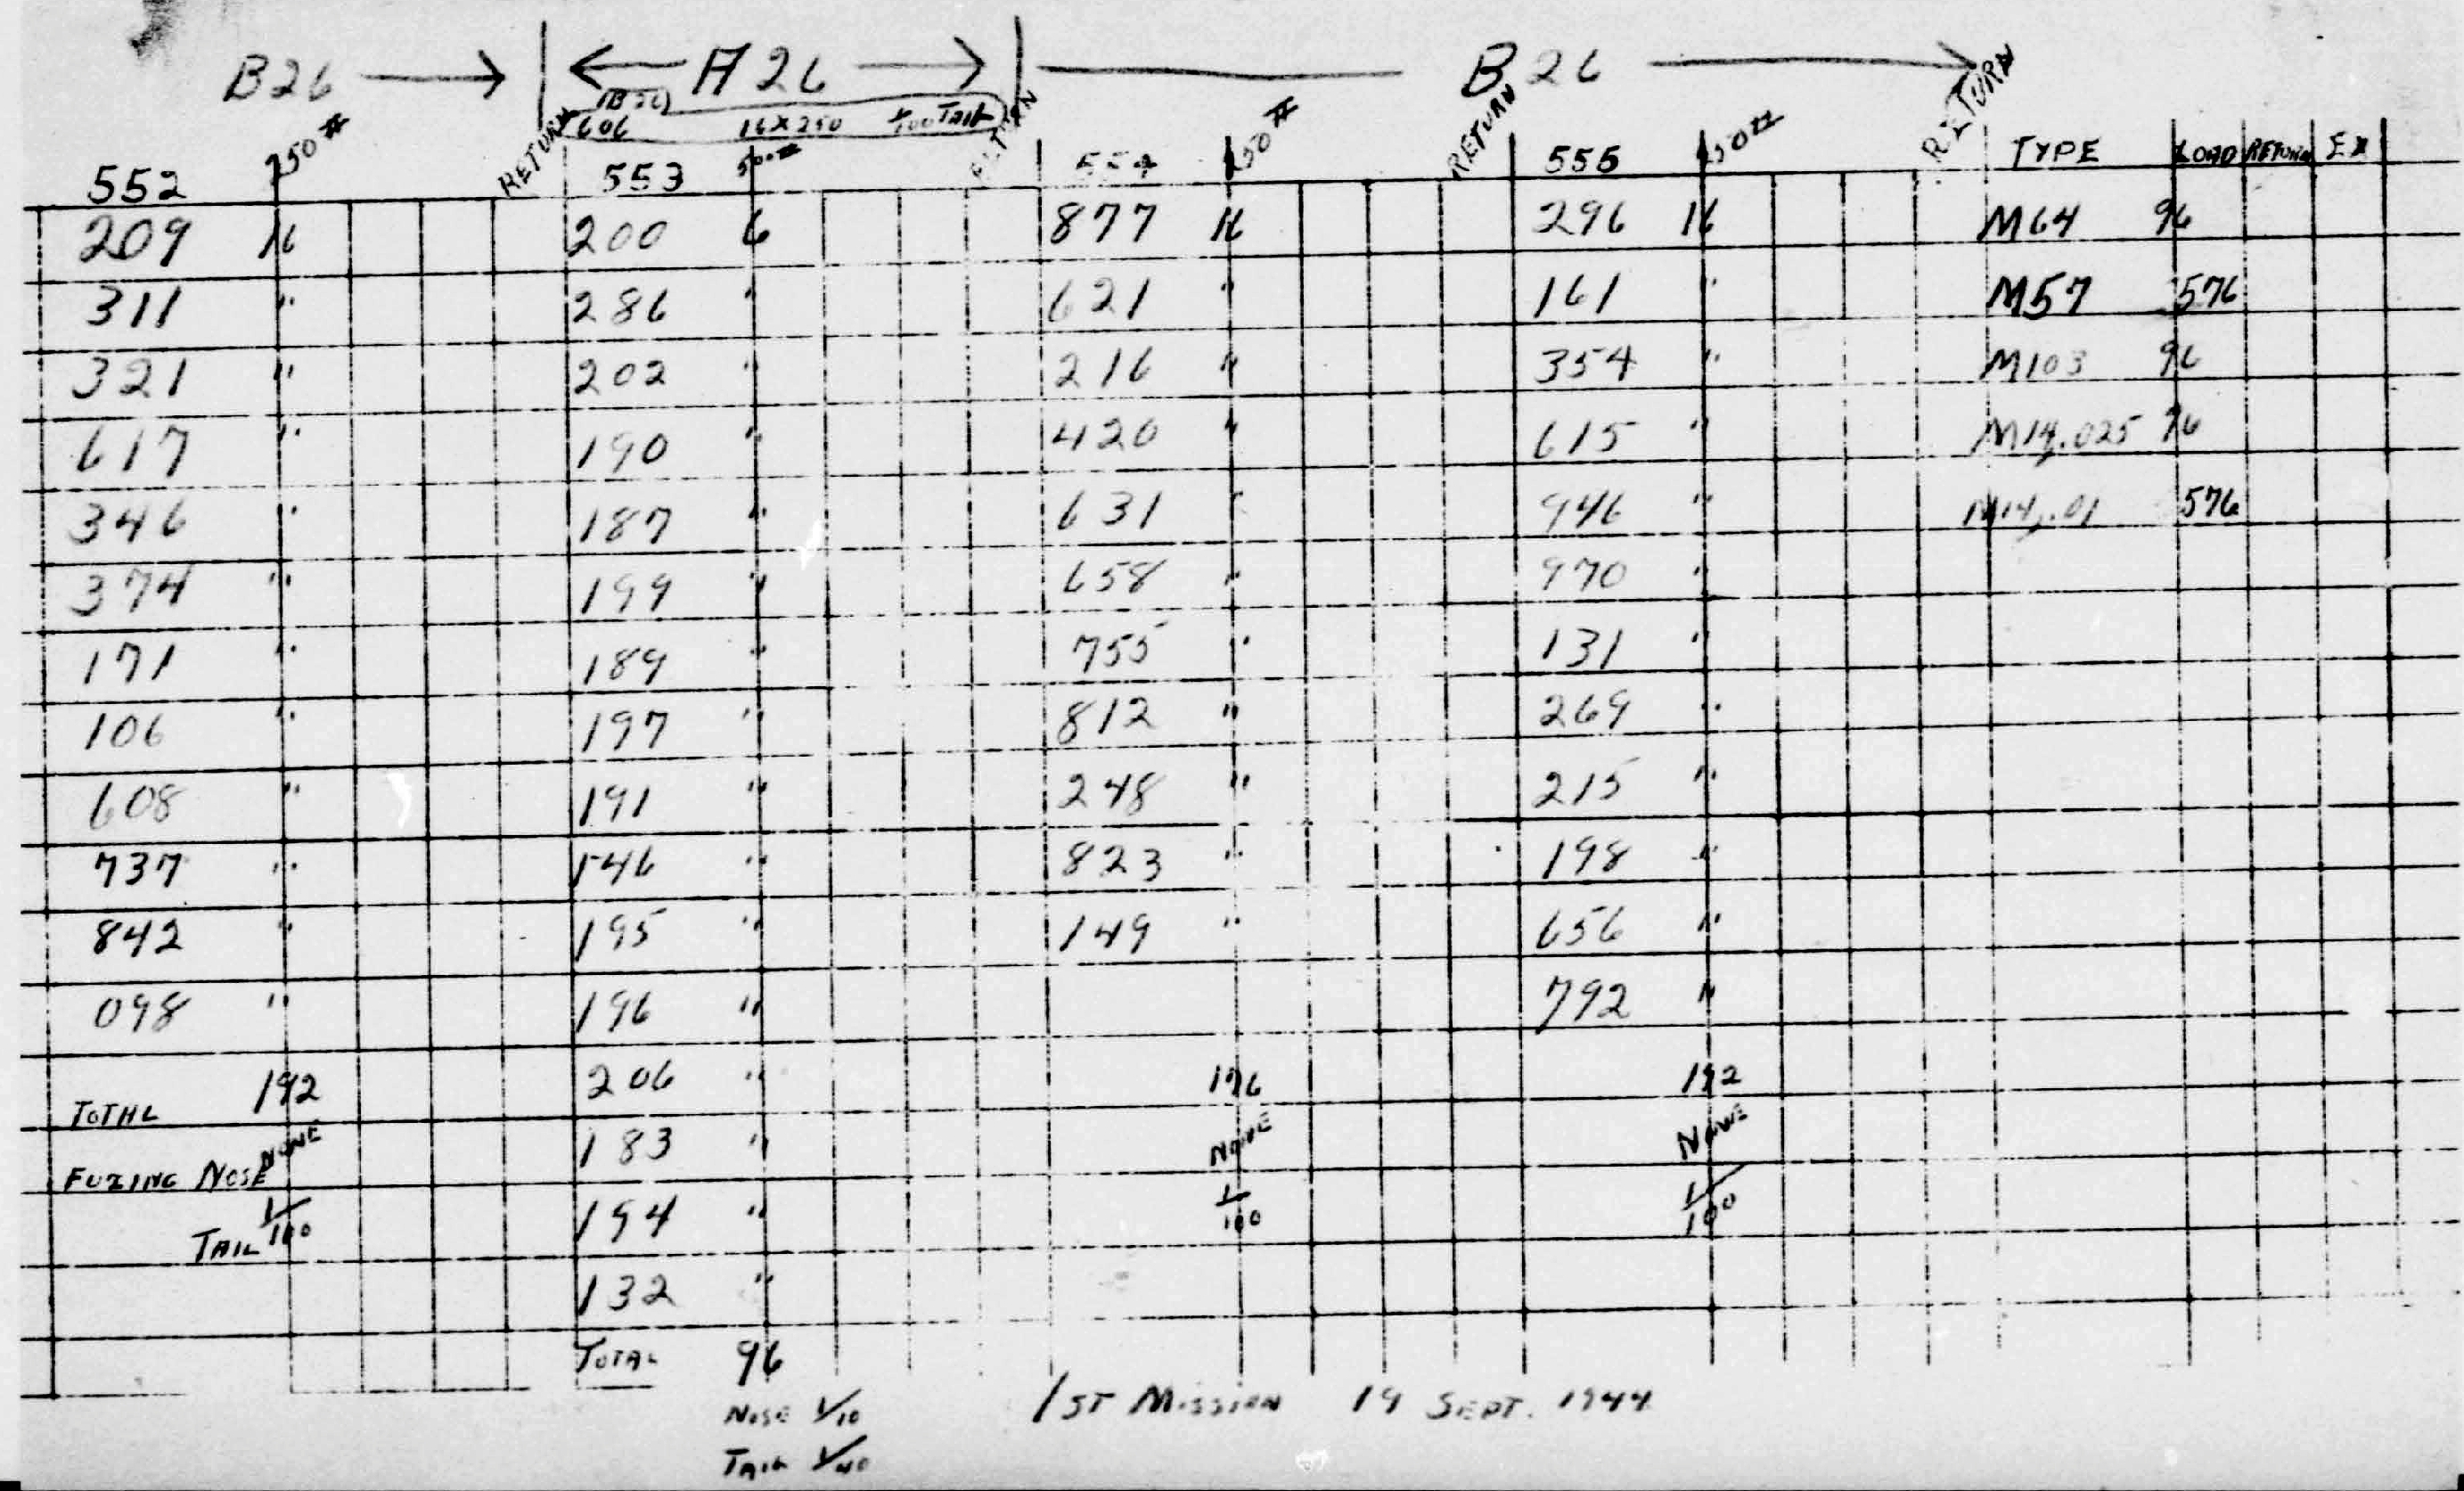 B26 → ← A26 → B26 →
(B26)
606 16x250 1/100 TAIL
552 250# RETURN 553 500# RETURN 554 250# RETURN 555 250# RETURN TYPE LOAD RETURN EX
209 16 200 6 877 16 296 16 M64 96
311 " 286 " 621 " 161 " M57 576
321 " 202 " 216 " 354 " M103 96
617 " 190 " 420 " 615 " M14.025 96
346 " 187 " 631 " 946 " M14.01 576
374 " 199 " 658 " 970 "
171 " 189 " 755 " 131 "
106 " 197 " 812 " 269 "
608 " 191 " 248 " 215 "
737 " 146 " 823 " 198 "
842 " 195 " 149 " 656 "
098 " 196 " 792 "
TOTAL 192 206 " 176 192
FUZING NOSE NONE 183 " NONE NONE
TAIL 1/100 194 " 1/100 1/100
132 "
TOTAL 96
NOSE 1/10 1ST MISSION 19 SEPT. 1944
TAIL 1/40